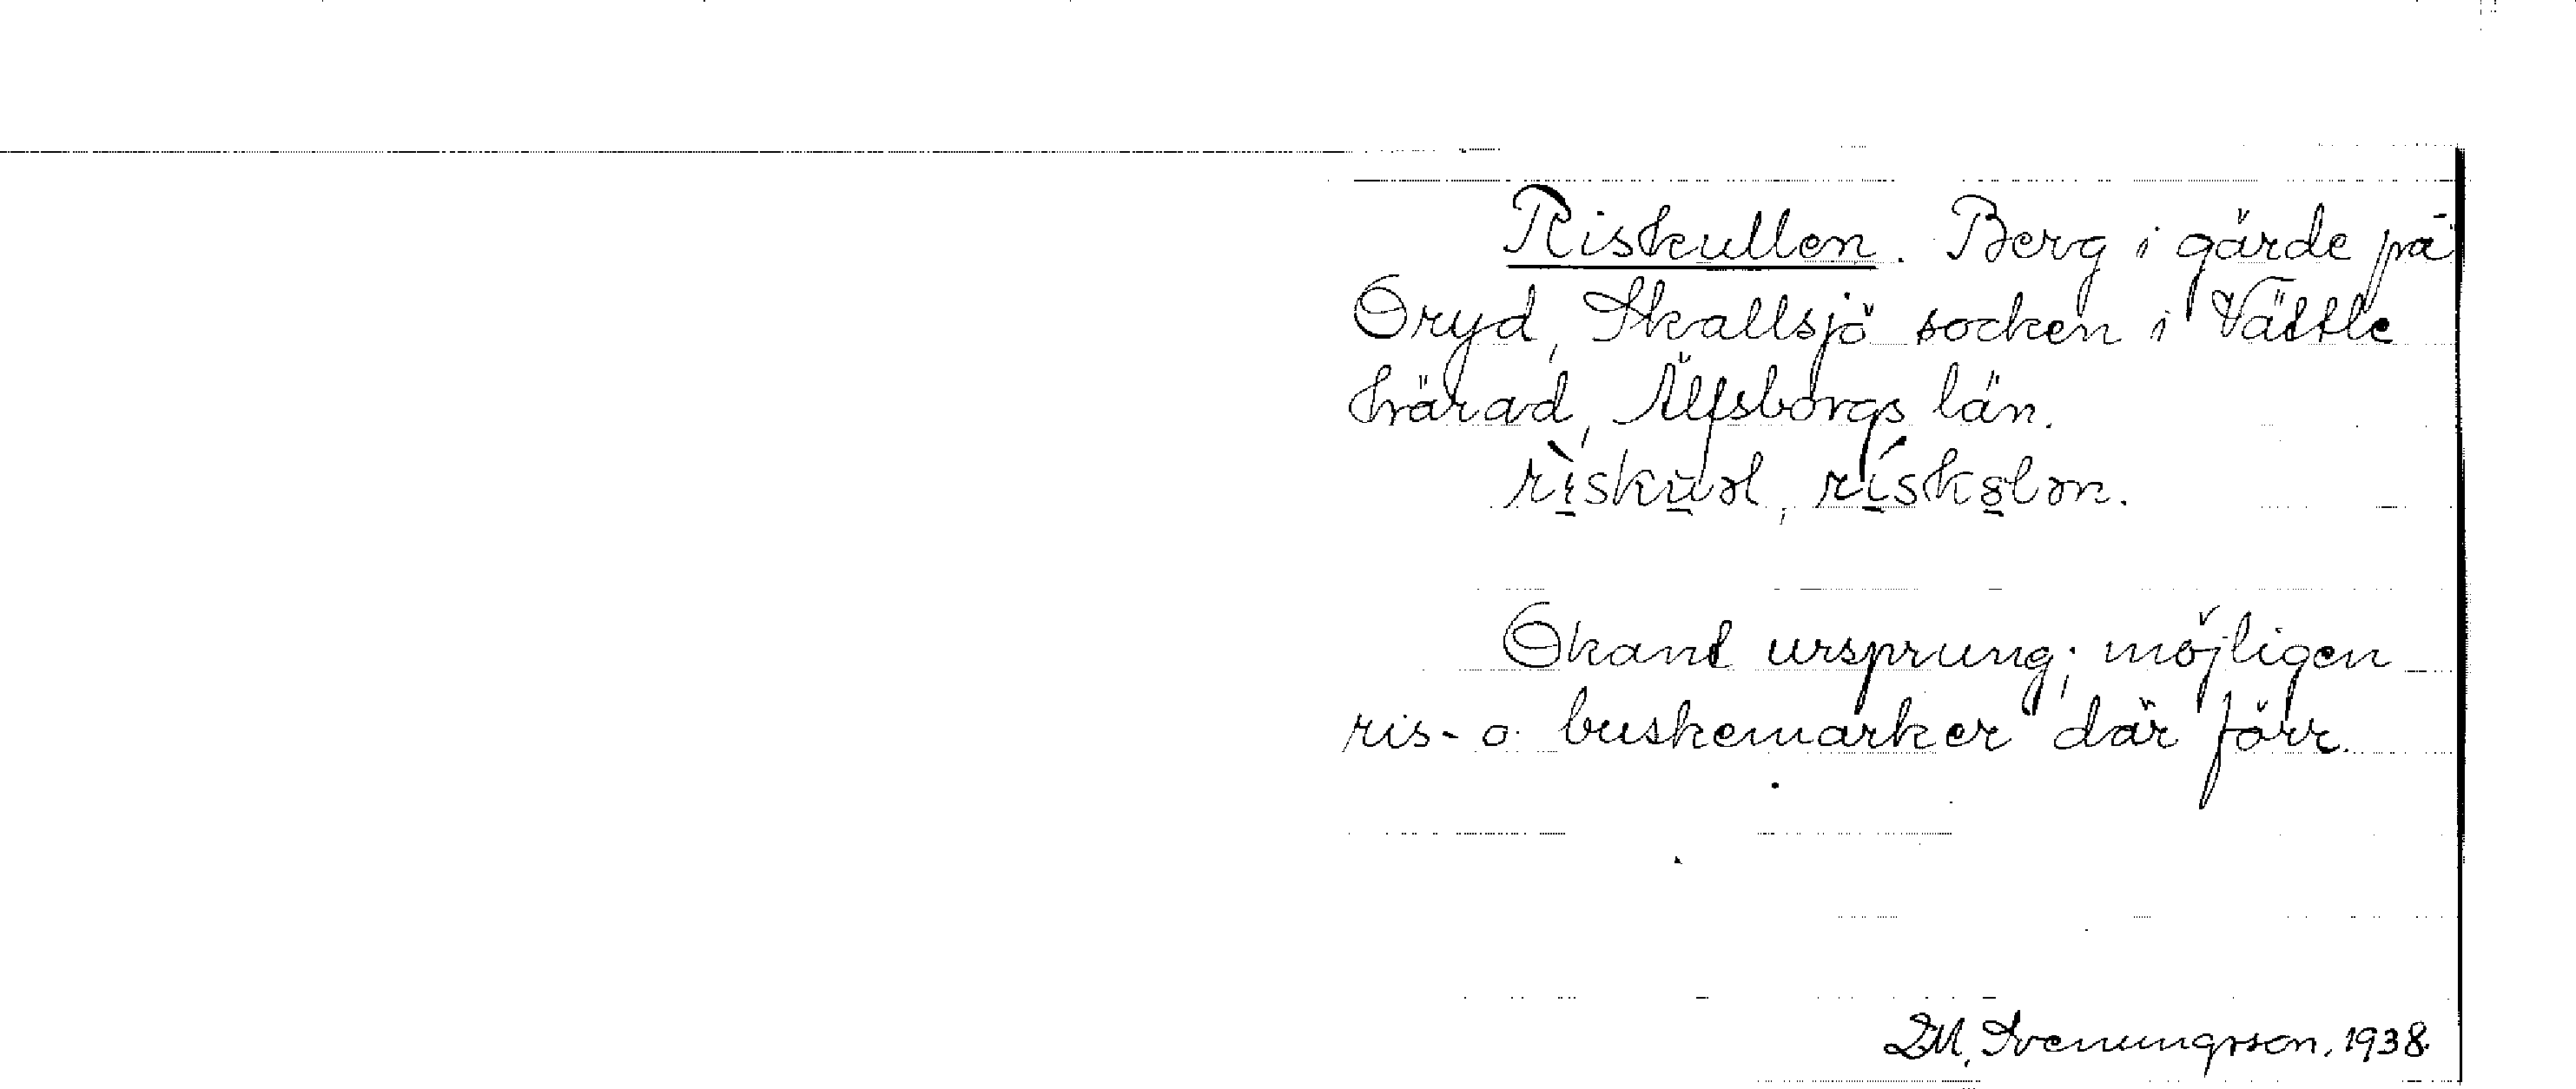 Riskullen. Berg i gärde på
Öryd, Skallsjö socken i Vättle
härad, Älfsborgs län.
Okant ursprung; möjligen
ris- o. buskemarker där förr.
D.M. Svenungsson. 1938.